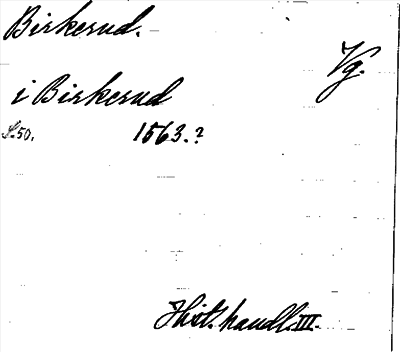 Birkerud.
Vg.
i Birkerud
S. 50. 1563.?
Hist. handl. III.